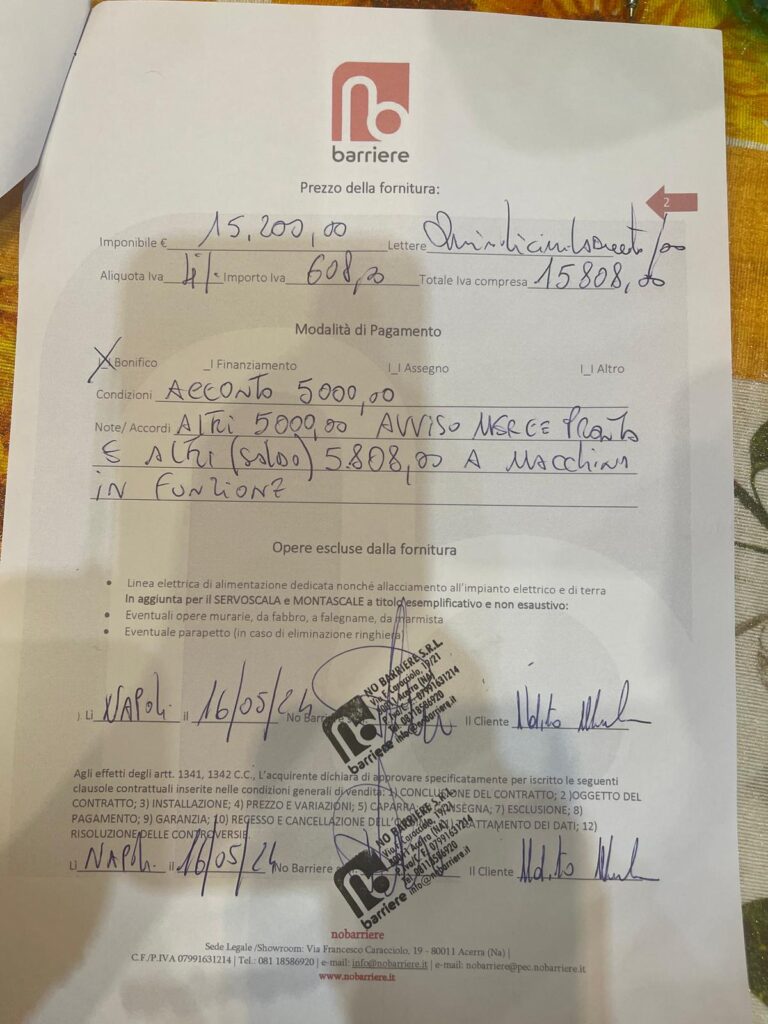 no
barriere
Prezzo della fornitura:
2
Imponibile € 15.200,00 Lettere Quindicimiladuecento/00
Aliquota Iva 4% Importo Iva 608,00 Totale Iva compresa 15808,00
Modalità di Pagamento
X Bonifico _I Finanziamento I_I Assegno I_I Altro
Condizioni ACCONTO 5000,00
Note/ Accordi ALTRI 5000,00 AVVISO MERCE PRONTA
E ALTRI (SALDO) 5.808,00 A MACCHINA
IN FUNZIONE
Opere escluse dalla fornitura
• Linea elettrica di alimentazione dedicata nonché allacciamento all'impianto elettrico e di terra
In aggiunta per il SERVOSCALA e MONTASCALE a titolo esemplificativo e non esaustivo:
• Eventuali opere murarie, da fabbro, a falegname, da marmista
• Eventuale parapetto (in caso di eliminazione ringhiera)
Lì NAPOLI il 16/05/24 No Barriere Il Cliente
NO BARRIERE S.R.L.
Via F. Caracciolo, 19/21
80011 Acerra (NA)
P. Iva/C.F. 07991631214
Tel. 08118586920
info@nobarriere.it
no
barriere
Agli effetti degli artt. 1341, 1342 C.C., L'acquirente dichiara di approvare specificatamente per iscritto le seguenti
clausole contrattuali inserite nelle condizioni generali di vendita: 1) CONCLUSIONE DEL CONTRATTO; 2 )OGGETTO DEL
CONTRATTO; 3) INSTALLAZIONE; 4) PREZZO E VARIAZIONI; 5) CAPARRA; CONSEGNA; 7) ESCLUSIONE; 8)
PAGAMENTO; 9) GARANZIA; 10) RECESSO E CANCELLAZIONE DELL' TRATTAMENTO DEI DATI; 12)
RISOLUZIONE DELLE CONTROVERSIE.
Lì NAPOLI il 16/05/24 No Barriere Il Cliente
NO BARRIERE S.R.L.
Via F. Caracciolo, 19/21
80011 Acerra (NA)
P. Iva/C.F. 07991631214
Tel. 08118586920
info@nobarriere.it
no
barriere
nobarriere
Sede Legale /Showroom: Via Francesco Caracciolo, 19 - 80011 Acerra (Na) |
C.F./P.IVA 07991631214 | Tel.: 081 18586920 | e-mail: info@nobarriere.it | e-mail: nobarriere@pec.nobarriere.it
www.nobarriere.it